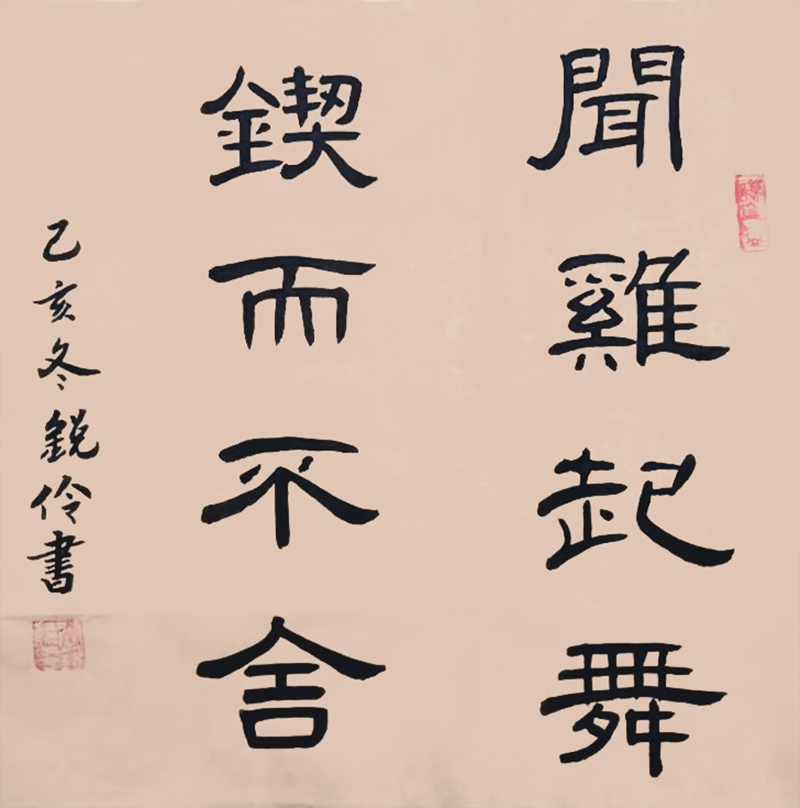 聞雞起舞
鍥而不舍
己亥冬銳伶書